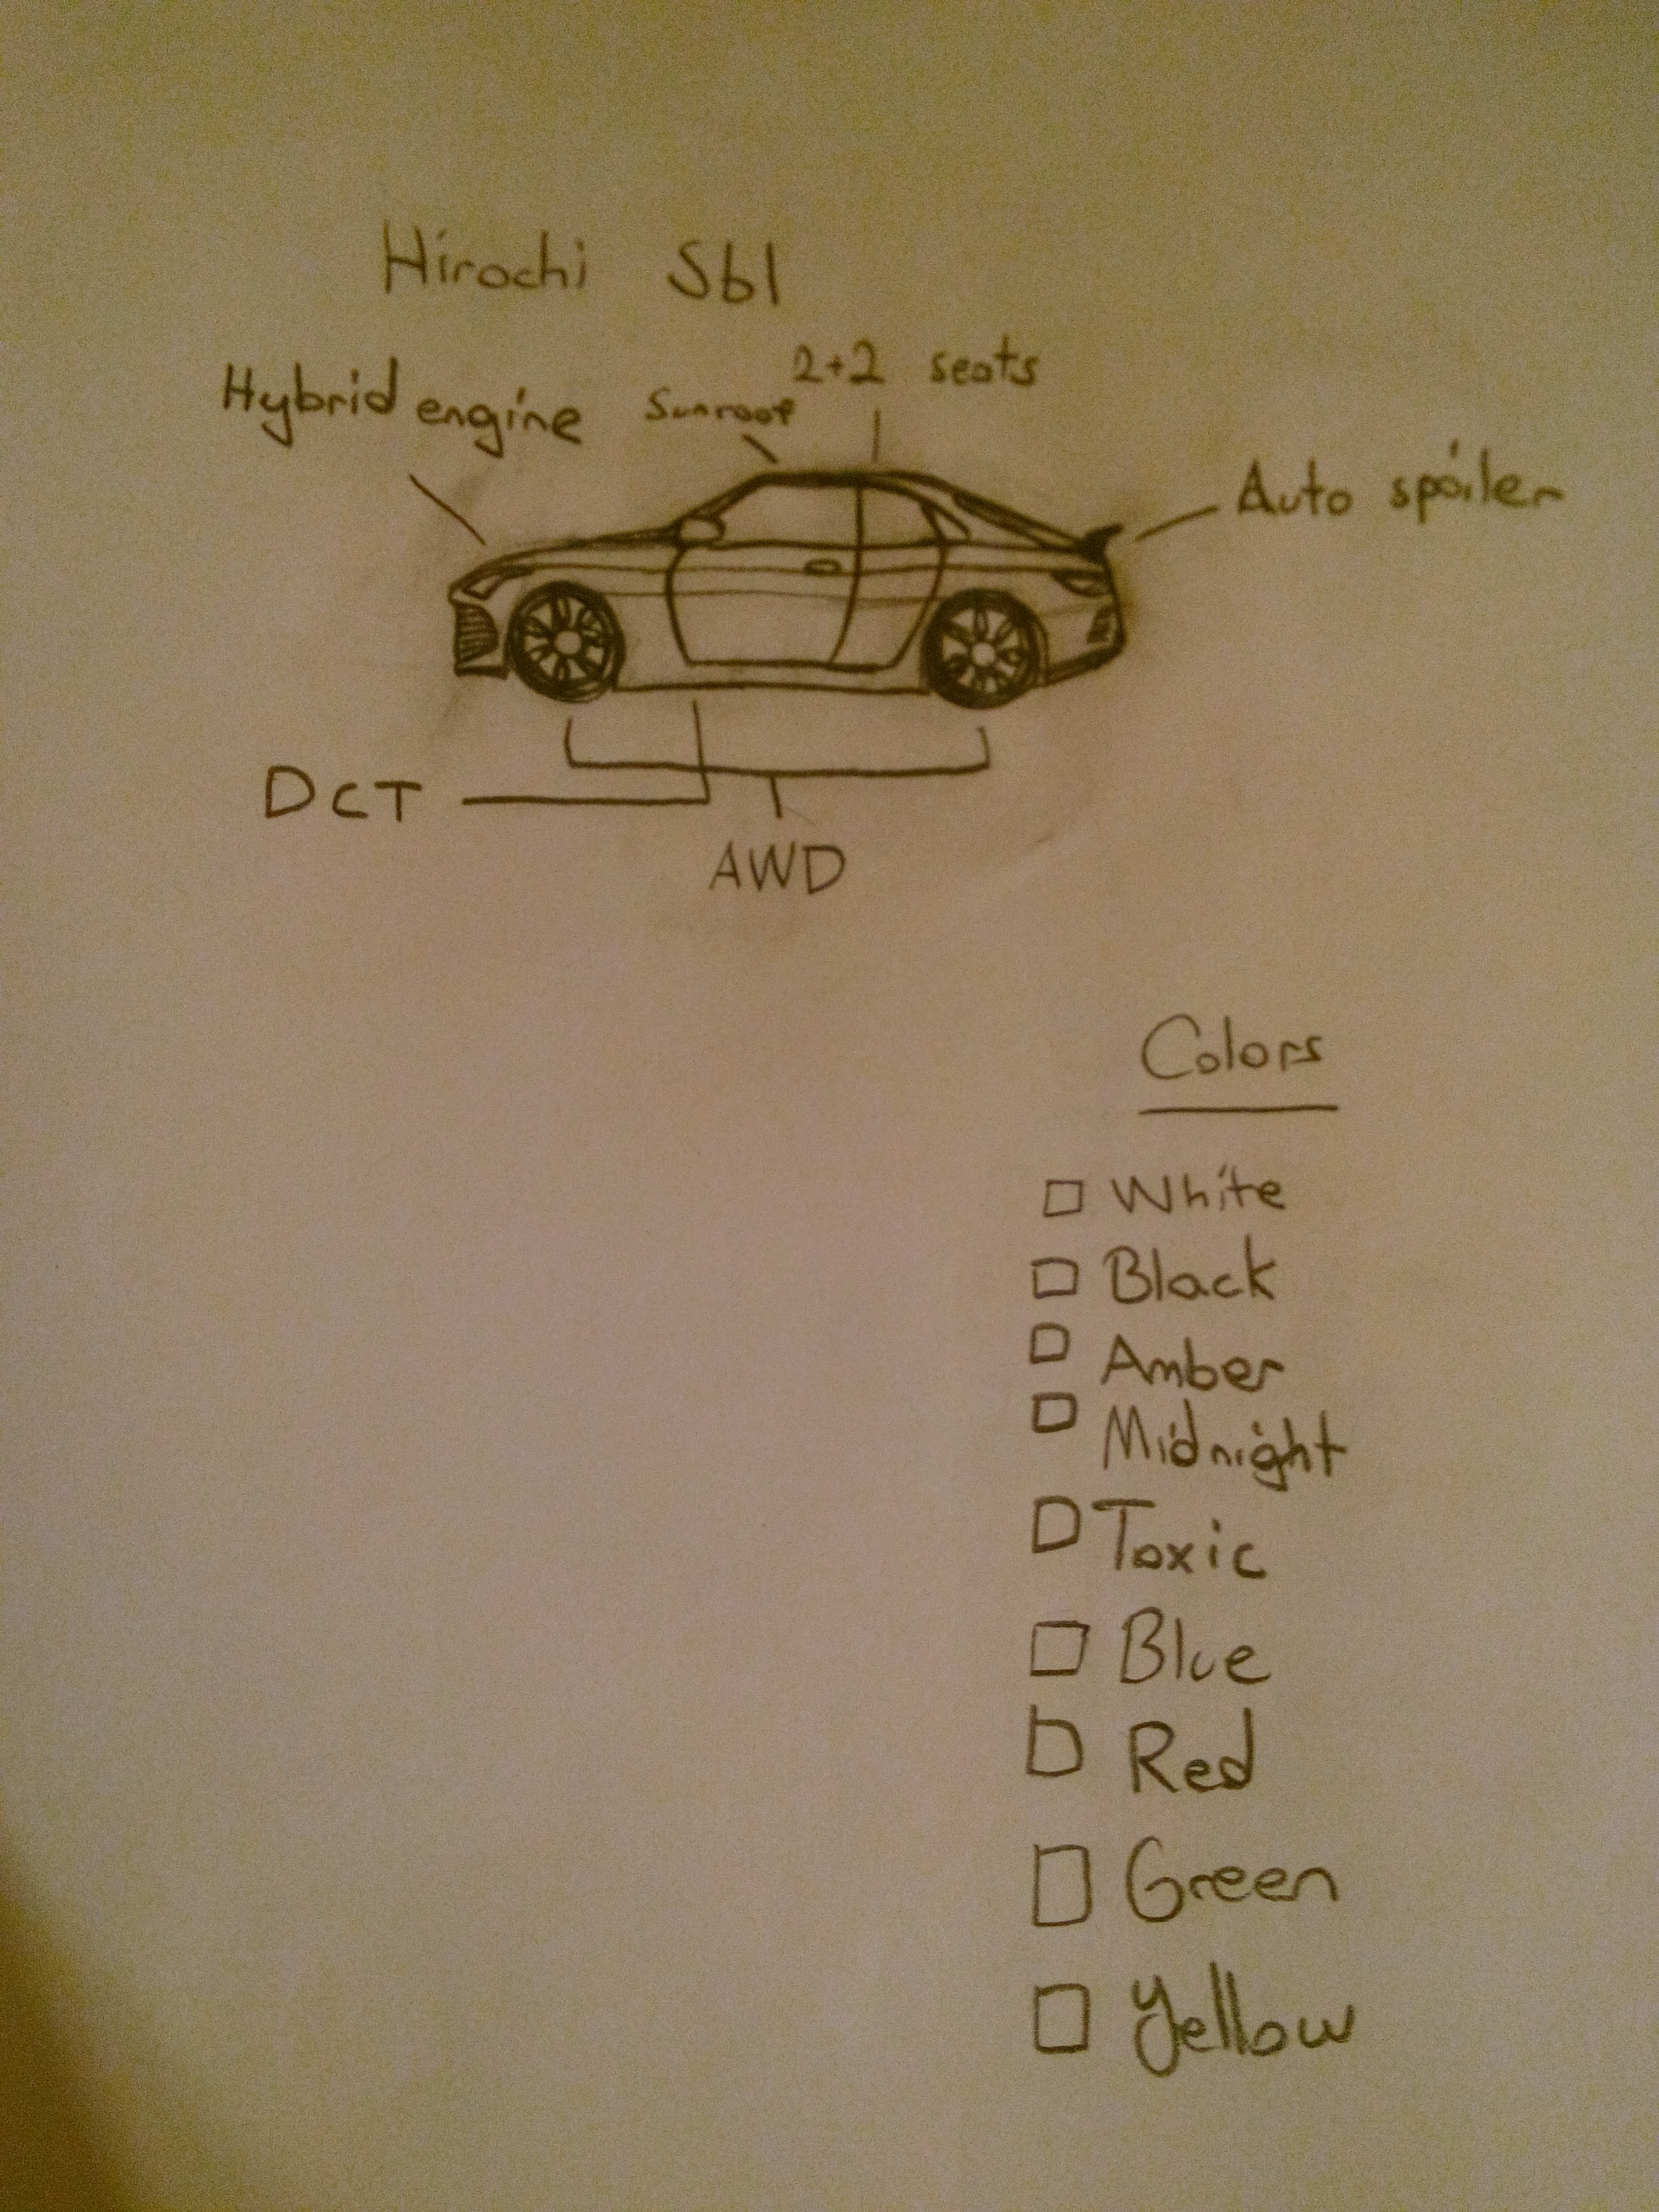 Hirochi Sb1
2+2 seats
Hybrid engine
Sunroof
Auto spoiler
DCT
AWD
Colors
White
Black
Amber
Midnight
Toxic
Blue
Red
Green
Yellow